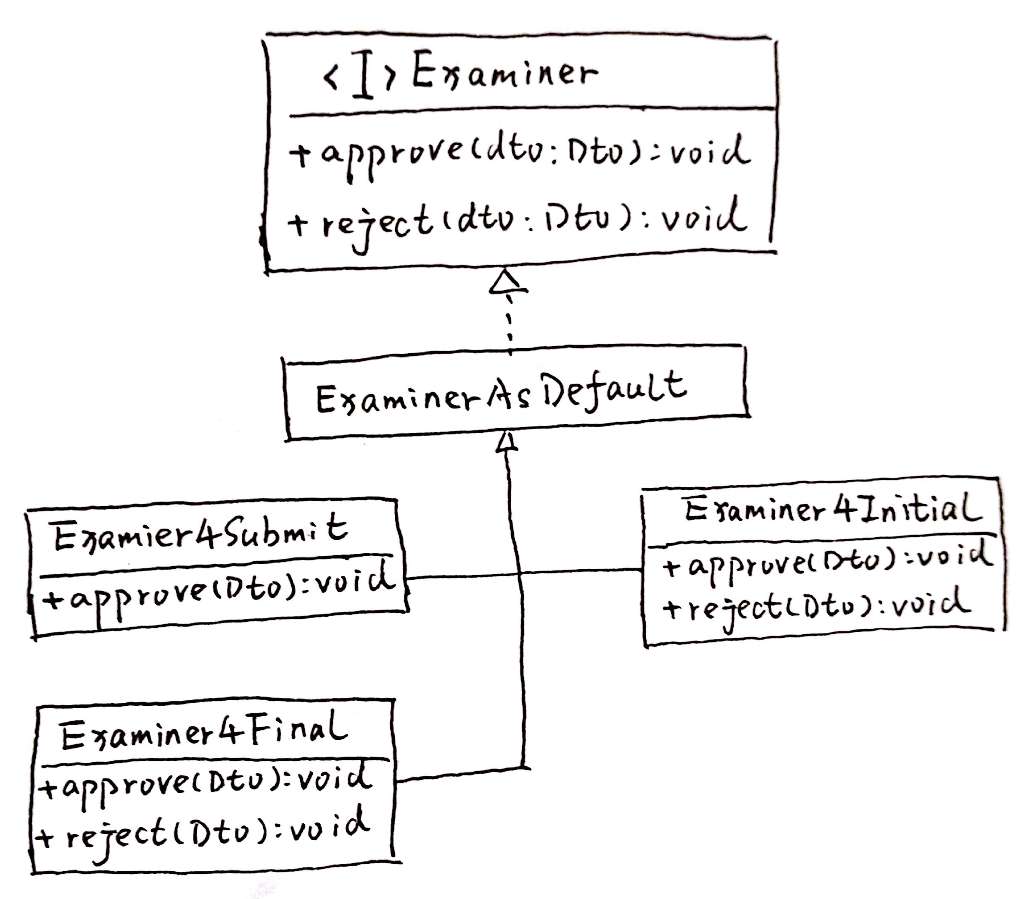 <I> Examiner
+ approve(dto: Dto): void
+ reject(dto: Dto): void
ExaminerAsDefault
Examier4Submit
+approve(Dto):void
Examiner4Initial
+approve(Dto):void
+reject(Dto):void
Examiner4Final
+approve(Dto):void
+reject(Dto):void